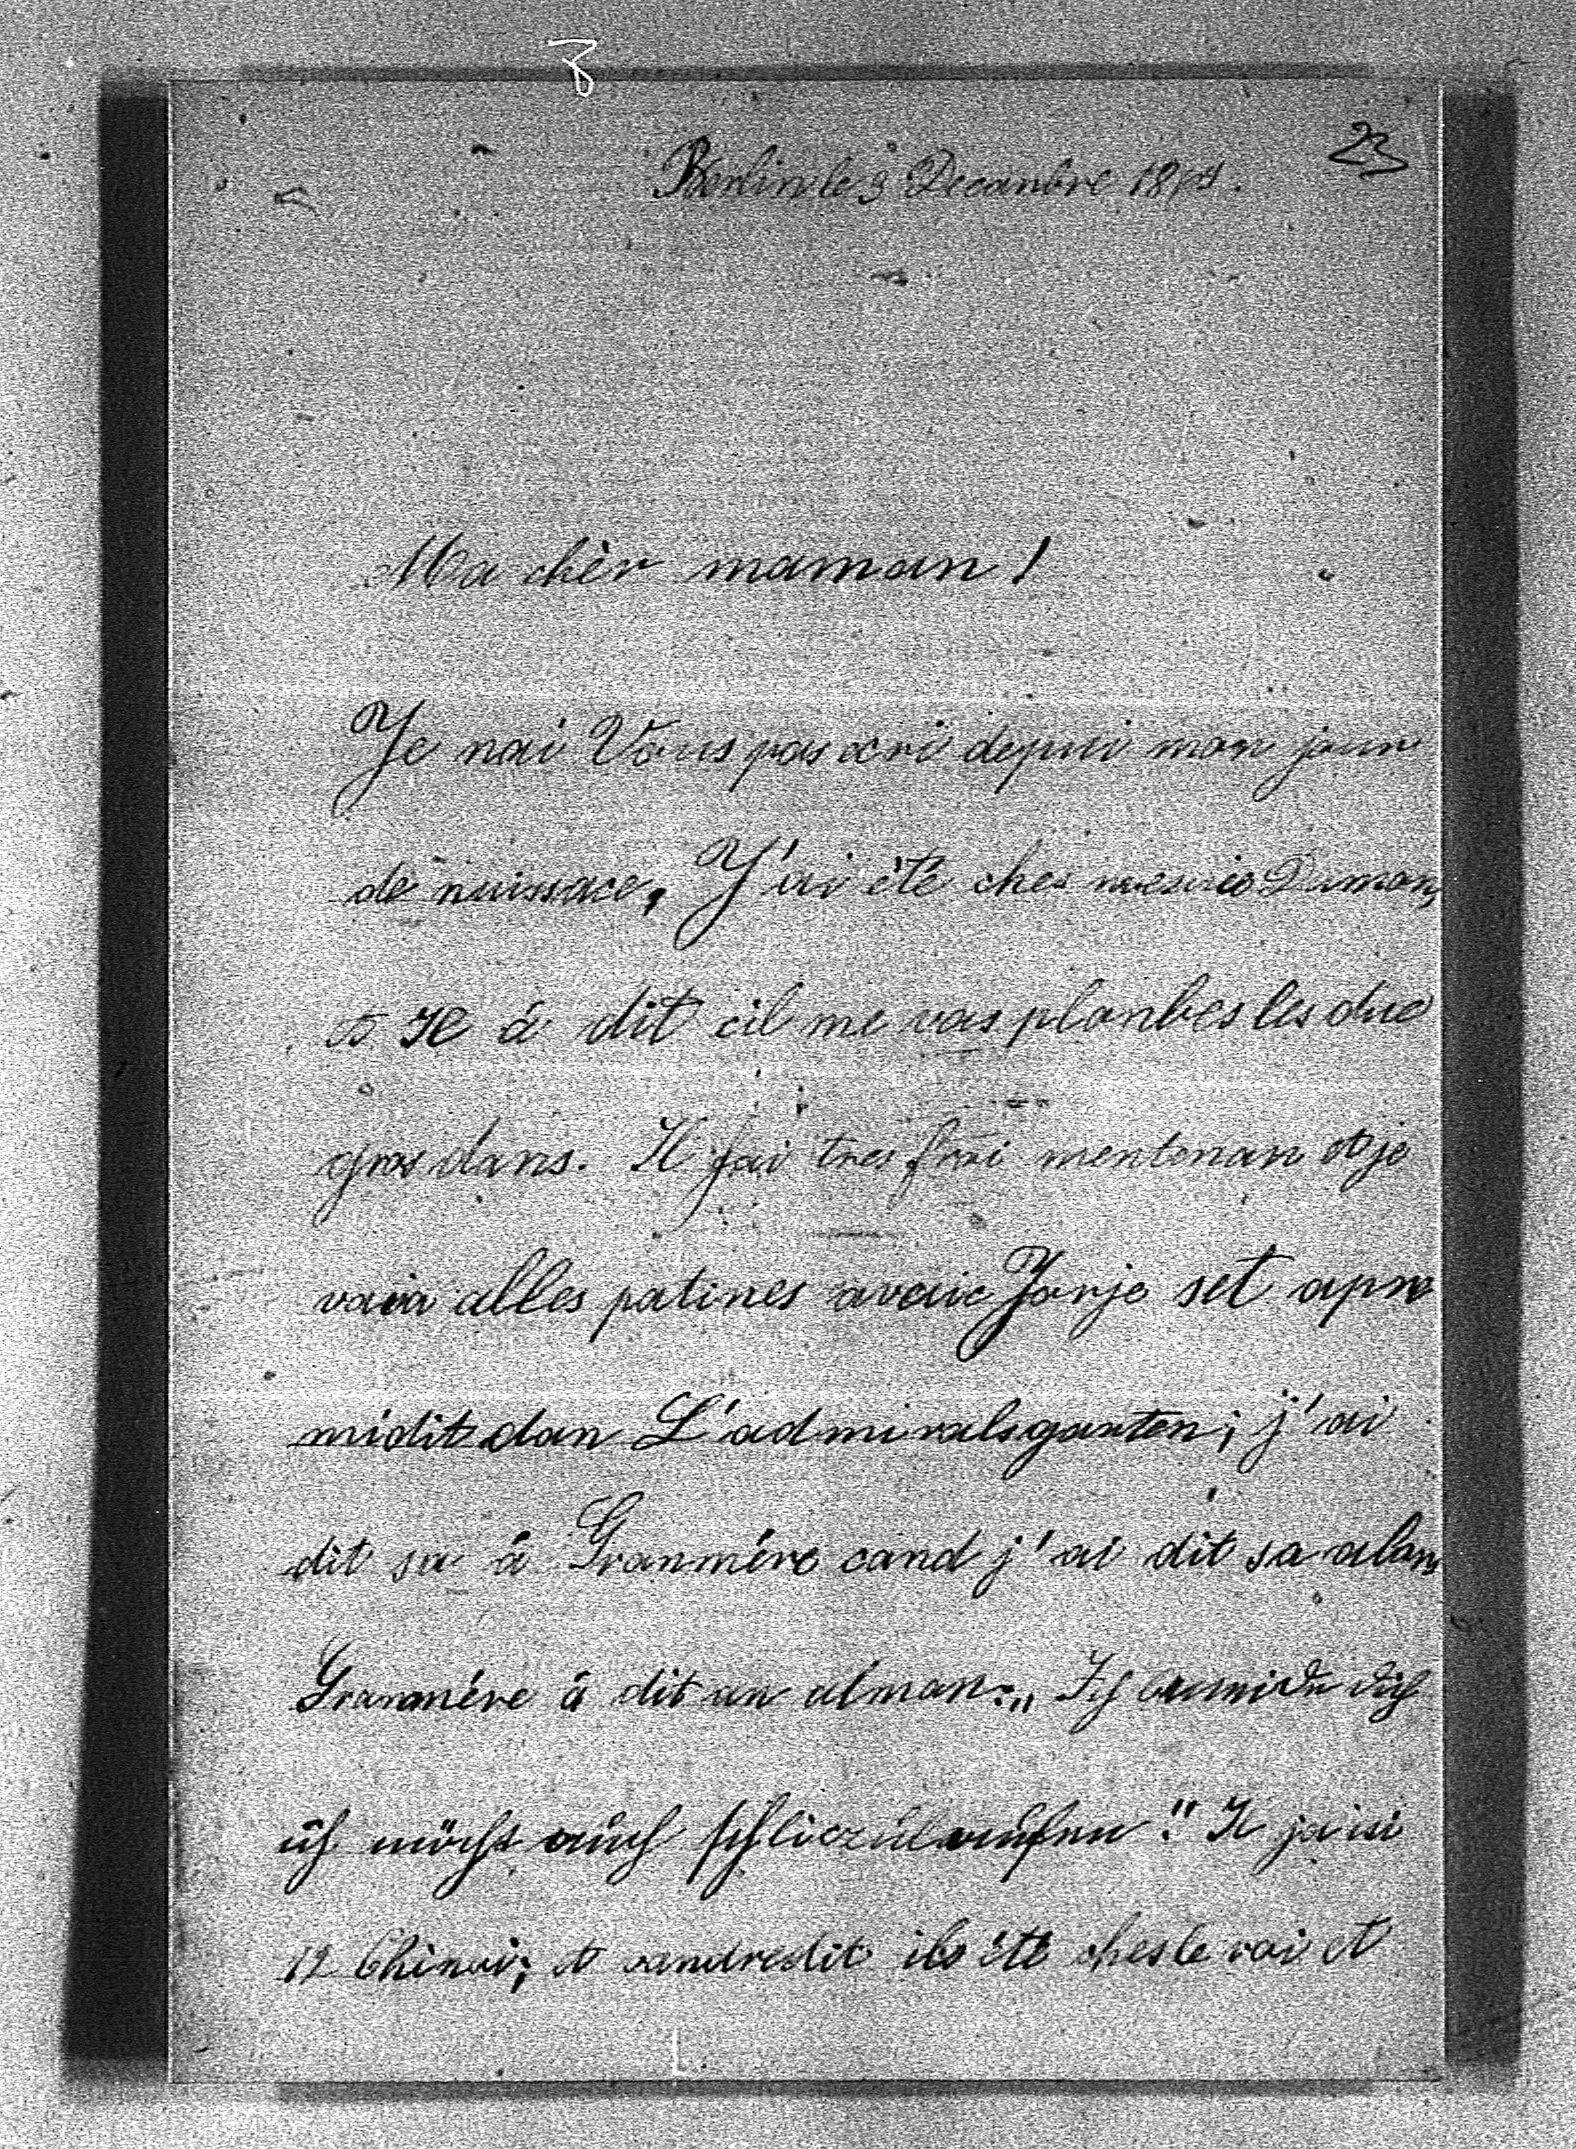 23
Berlin le 9 Decanbre 18
Ma chèr maman!
Je nai Vous pas ecri depui mon jour
de naissace, J'ai été ches mesieo Dumon,
et Il á dit cil me vas planbes les due
gros dans. Il fai tres froi mentenan et je
vaia alles patines avaic Jorje set apre
midit dan L'admiralsgarten; j'ai
dit sa á Granmére cand j'ai dit sa alan
Granmére á dit an alman: „Ich dich
ich möcht auch schliczulaufen". Il ja isi
12 Chinoi; et vandredit ils été ches le roi et